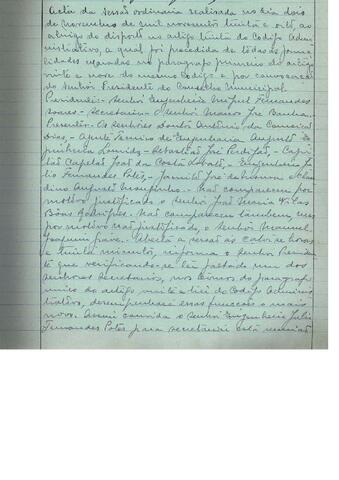 Acta da sessão ordinaria realizada no dia dois
de Novembro de mil novecentos trinta e oito, ao
abrigo do disposto no artigo trinta do Codigo Admi-
nistrativo, a qual foi precedida de todas as forma-
lidades exaradas no paragrafo primeiro do artigo
vinte e nove do mesmo Codigo e por convocação
do Senhor Presidente do Conselho Municipal
Presidencia: - Senhor Engenheiro Miguel Fernandes
Soares - Secretario - o Senhor Marcos José Banha.
Presentes: - Os Senhores Doutor António da Conceição
Dias, - Agente Tecnico de Engenharia Augusto
Lourido, - Sebastião José Perdigão, - Capi-
tão José da Costa - Engenheiro Ju-
lio Fernandes Potes, - José de
dino Augusto - Não compareceu por
motivo justificado o senhor José Maria Vilas
Bôas Rodrigues. Não compareceu tambem, mas
por motivo não justificado, o senhor Manuel
Joaquim Grave. Aberta a sessão ás catorze horas
e trinta minutos, informa o senhor Presiden-
te que verificando-se ter faltado um dos
senhores secretarios, nos termos do paragrafo
unico do artigo vinte e tres do Codigo Adminis-
trativo, desempenhará essas funções o mais
novo. Assim convida o senhor Engenheiro Julio
Fernandes Potes para secretariar esta reunião